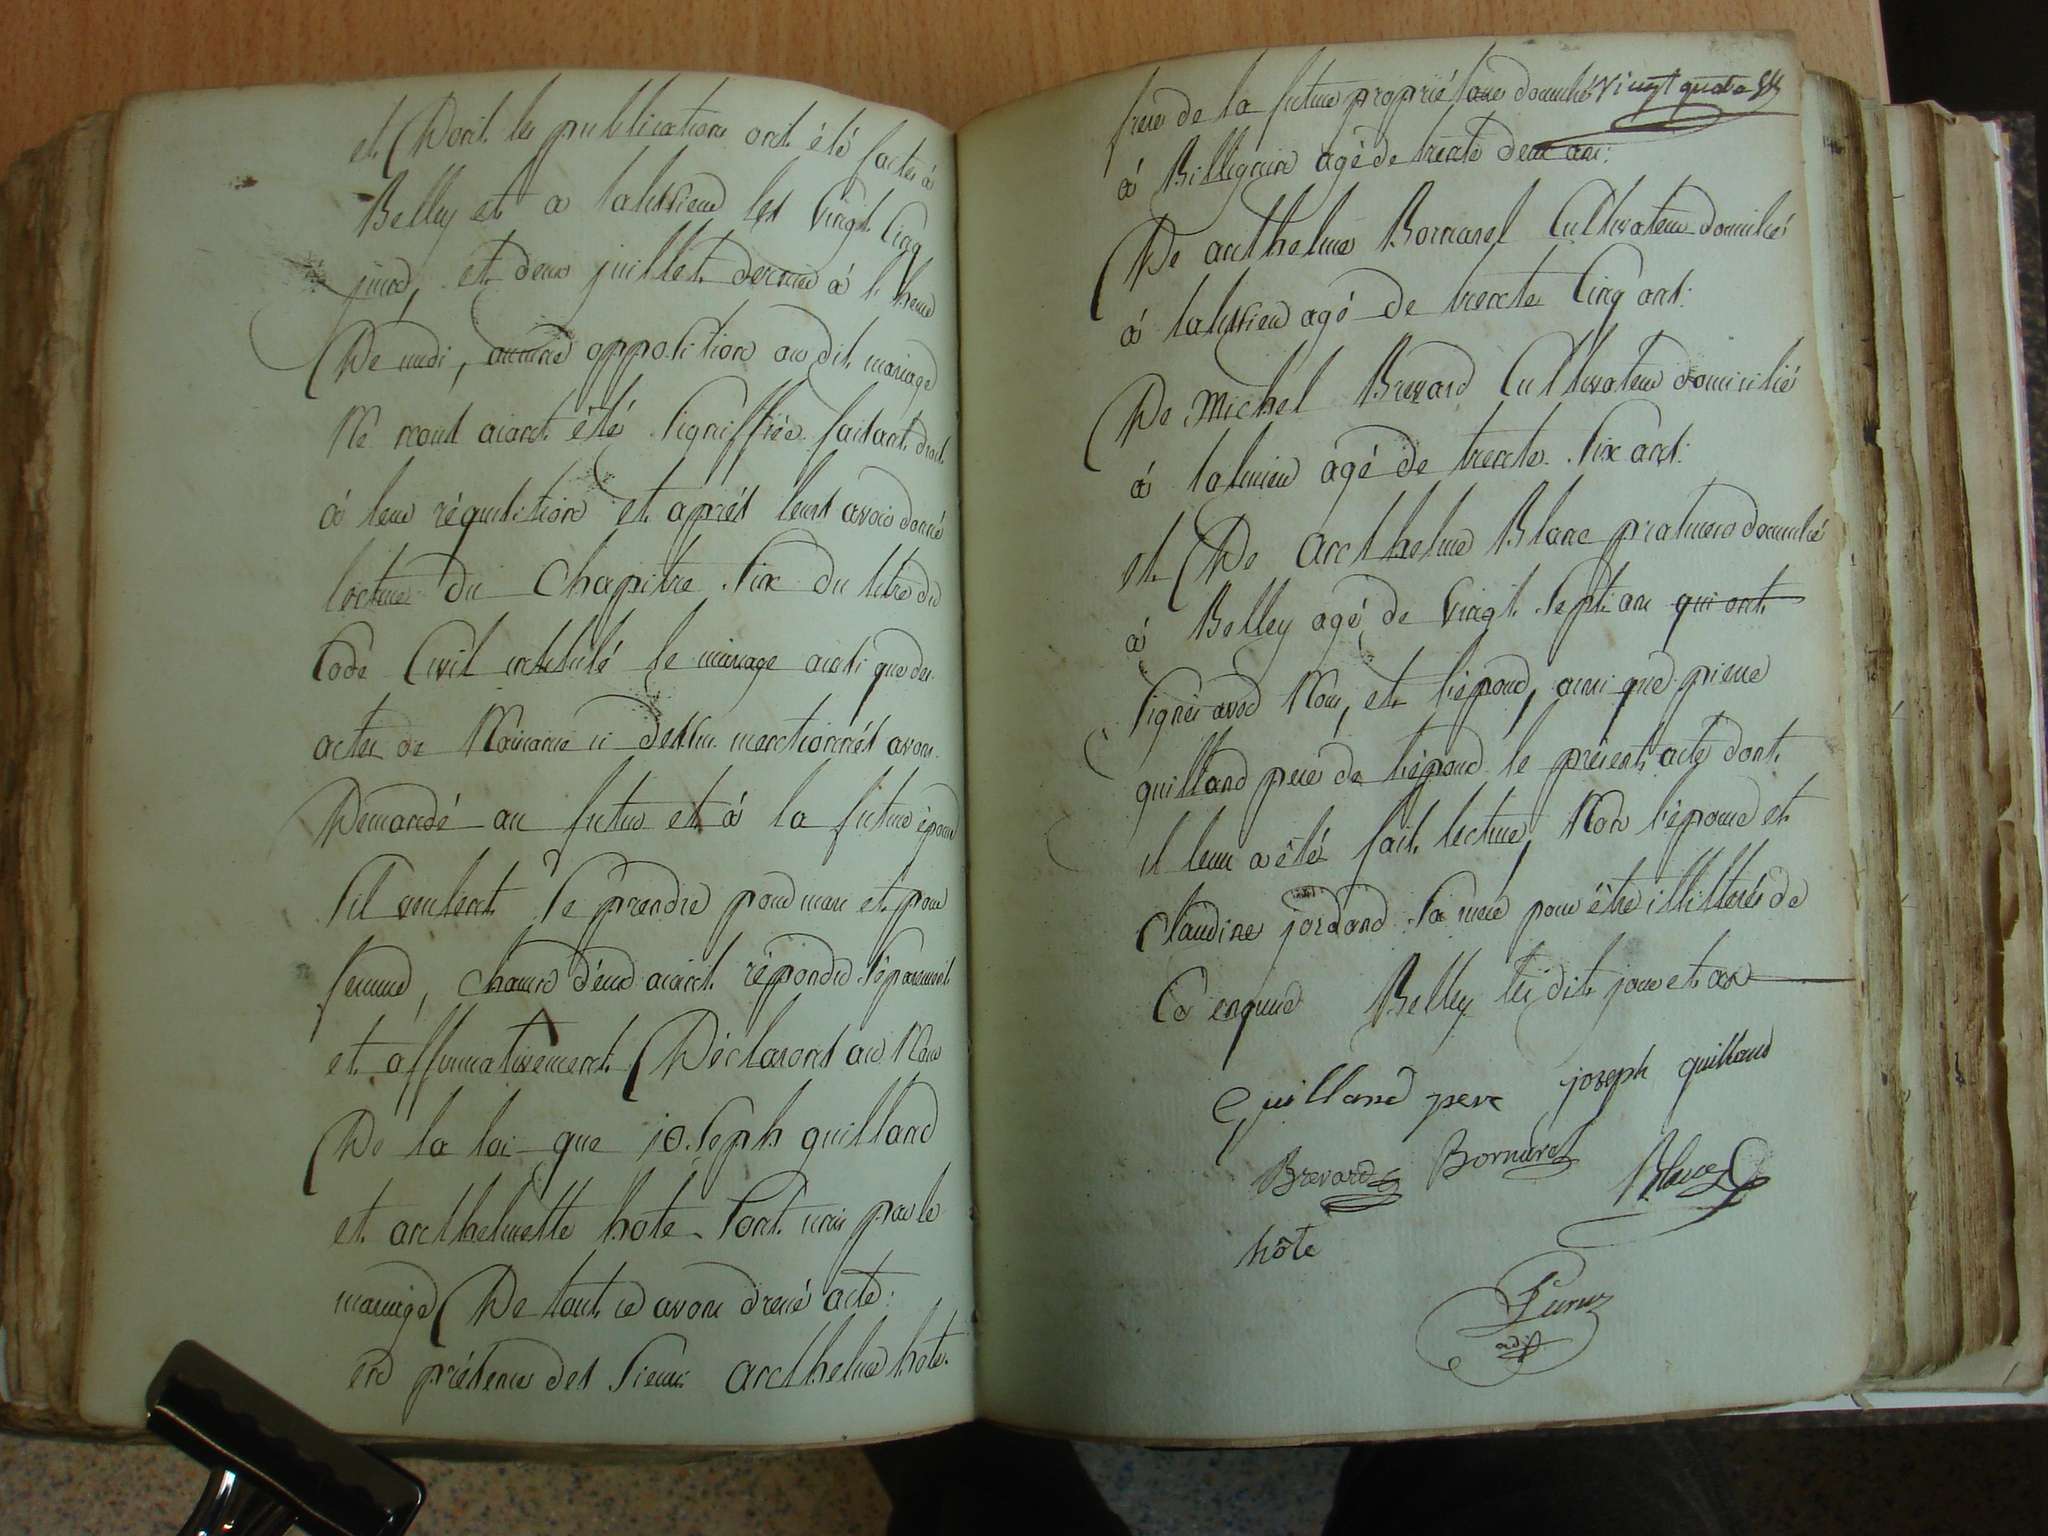 et Dont les publications ont été faites à
Belley et a lahurieu les Vingt Cinq
juin, et deux juillet dernier à l'heure
De midi, aucune opposition au dit mariage
Ne nous aiant été signiffiée faisant droit
à leur réquisition et aprést leurs avoir donné
lecture du Chapitre Six du titre du
Code Civil intitulé le mariage ainsi que des
actes de Naissance ci dessus mentionnés avons
Demandé au futur et à la future épouse
s'il veulent se prendre pour mari et pour
femme, chacun d'eux aiant répondu séparément
et affirmativement Déclarons au Nom
De la loi que joseph guilland
et anthelmette hote sont unis par le
mariage De tout ce avons dressé acte:
en présence des sieurs anthelme hote.
frere de la future propriétaire domicilié vingt quatre
à Billignin agé de trente deux ans:
De anthelme Bornarel Cultivateur domicilié
à lahurieu agé de trente Cinq ans:
De Michel Brevard Cultivateur domicilié
à lahurieu âgé de trente Six ans:
et De anthelme Blanc domicilié
à Belley agé de Vingt Sept ans qui ont
signés avec Nous, et l'époux, ainsi que pierre
guilland pere de l'époux le présent acte dont
il leur a été fait lecture, Non l'épouse et
Claudine jordand sa mere pour être illitterés de
Ce enquis Belley les dit jour et an
Guilland pere joseph guilland
Brevard Bornarel Blanc
hôte
adjt